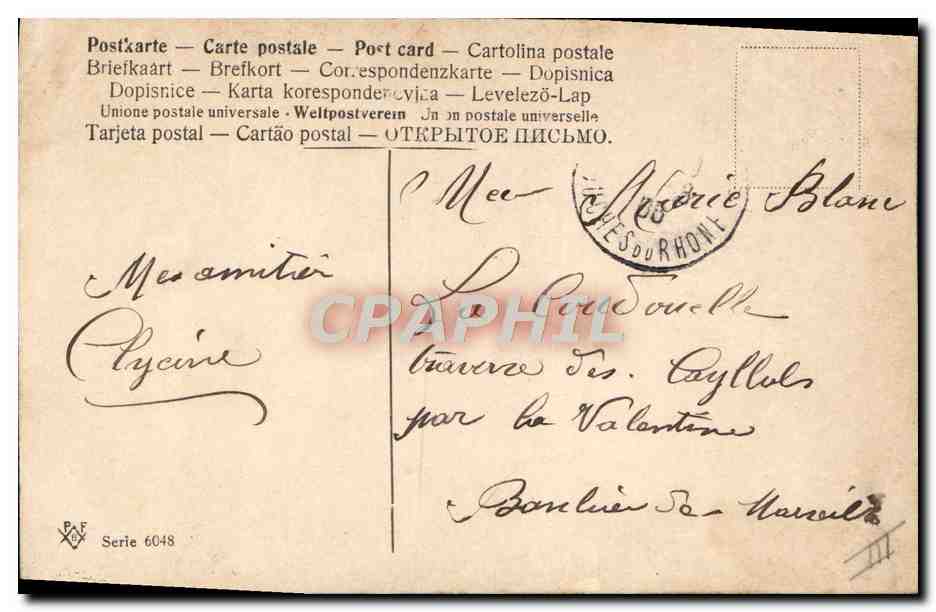 Postkarte — Carte postale — Post card — Cartolina postale
Briefkaart — Brefkort — Correspondenzkarte — Dopisnica
Dopisnice — Karta korespondencyjna — Levelező-Lap
Unione postale universale - Weltpostverein Union postale universelle
Tarjeta postal — Cartão postal — ОТКРЫТОЕ ПИСЬМО.
BOUCHES DU RHONE
Marie Blanc
Mes amitiés
La
traverse des. Cayllols
par la Valentine
Banlieue de Marseille
III
CPAPHIL
PFB
Serie 6048